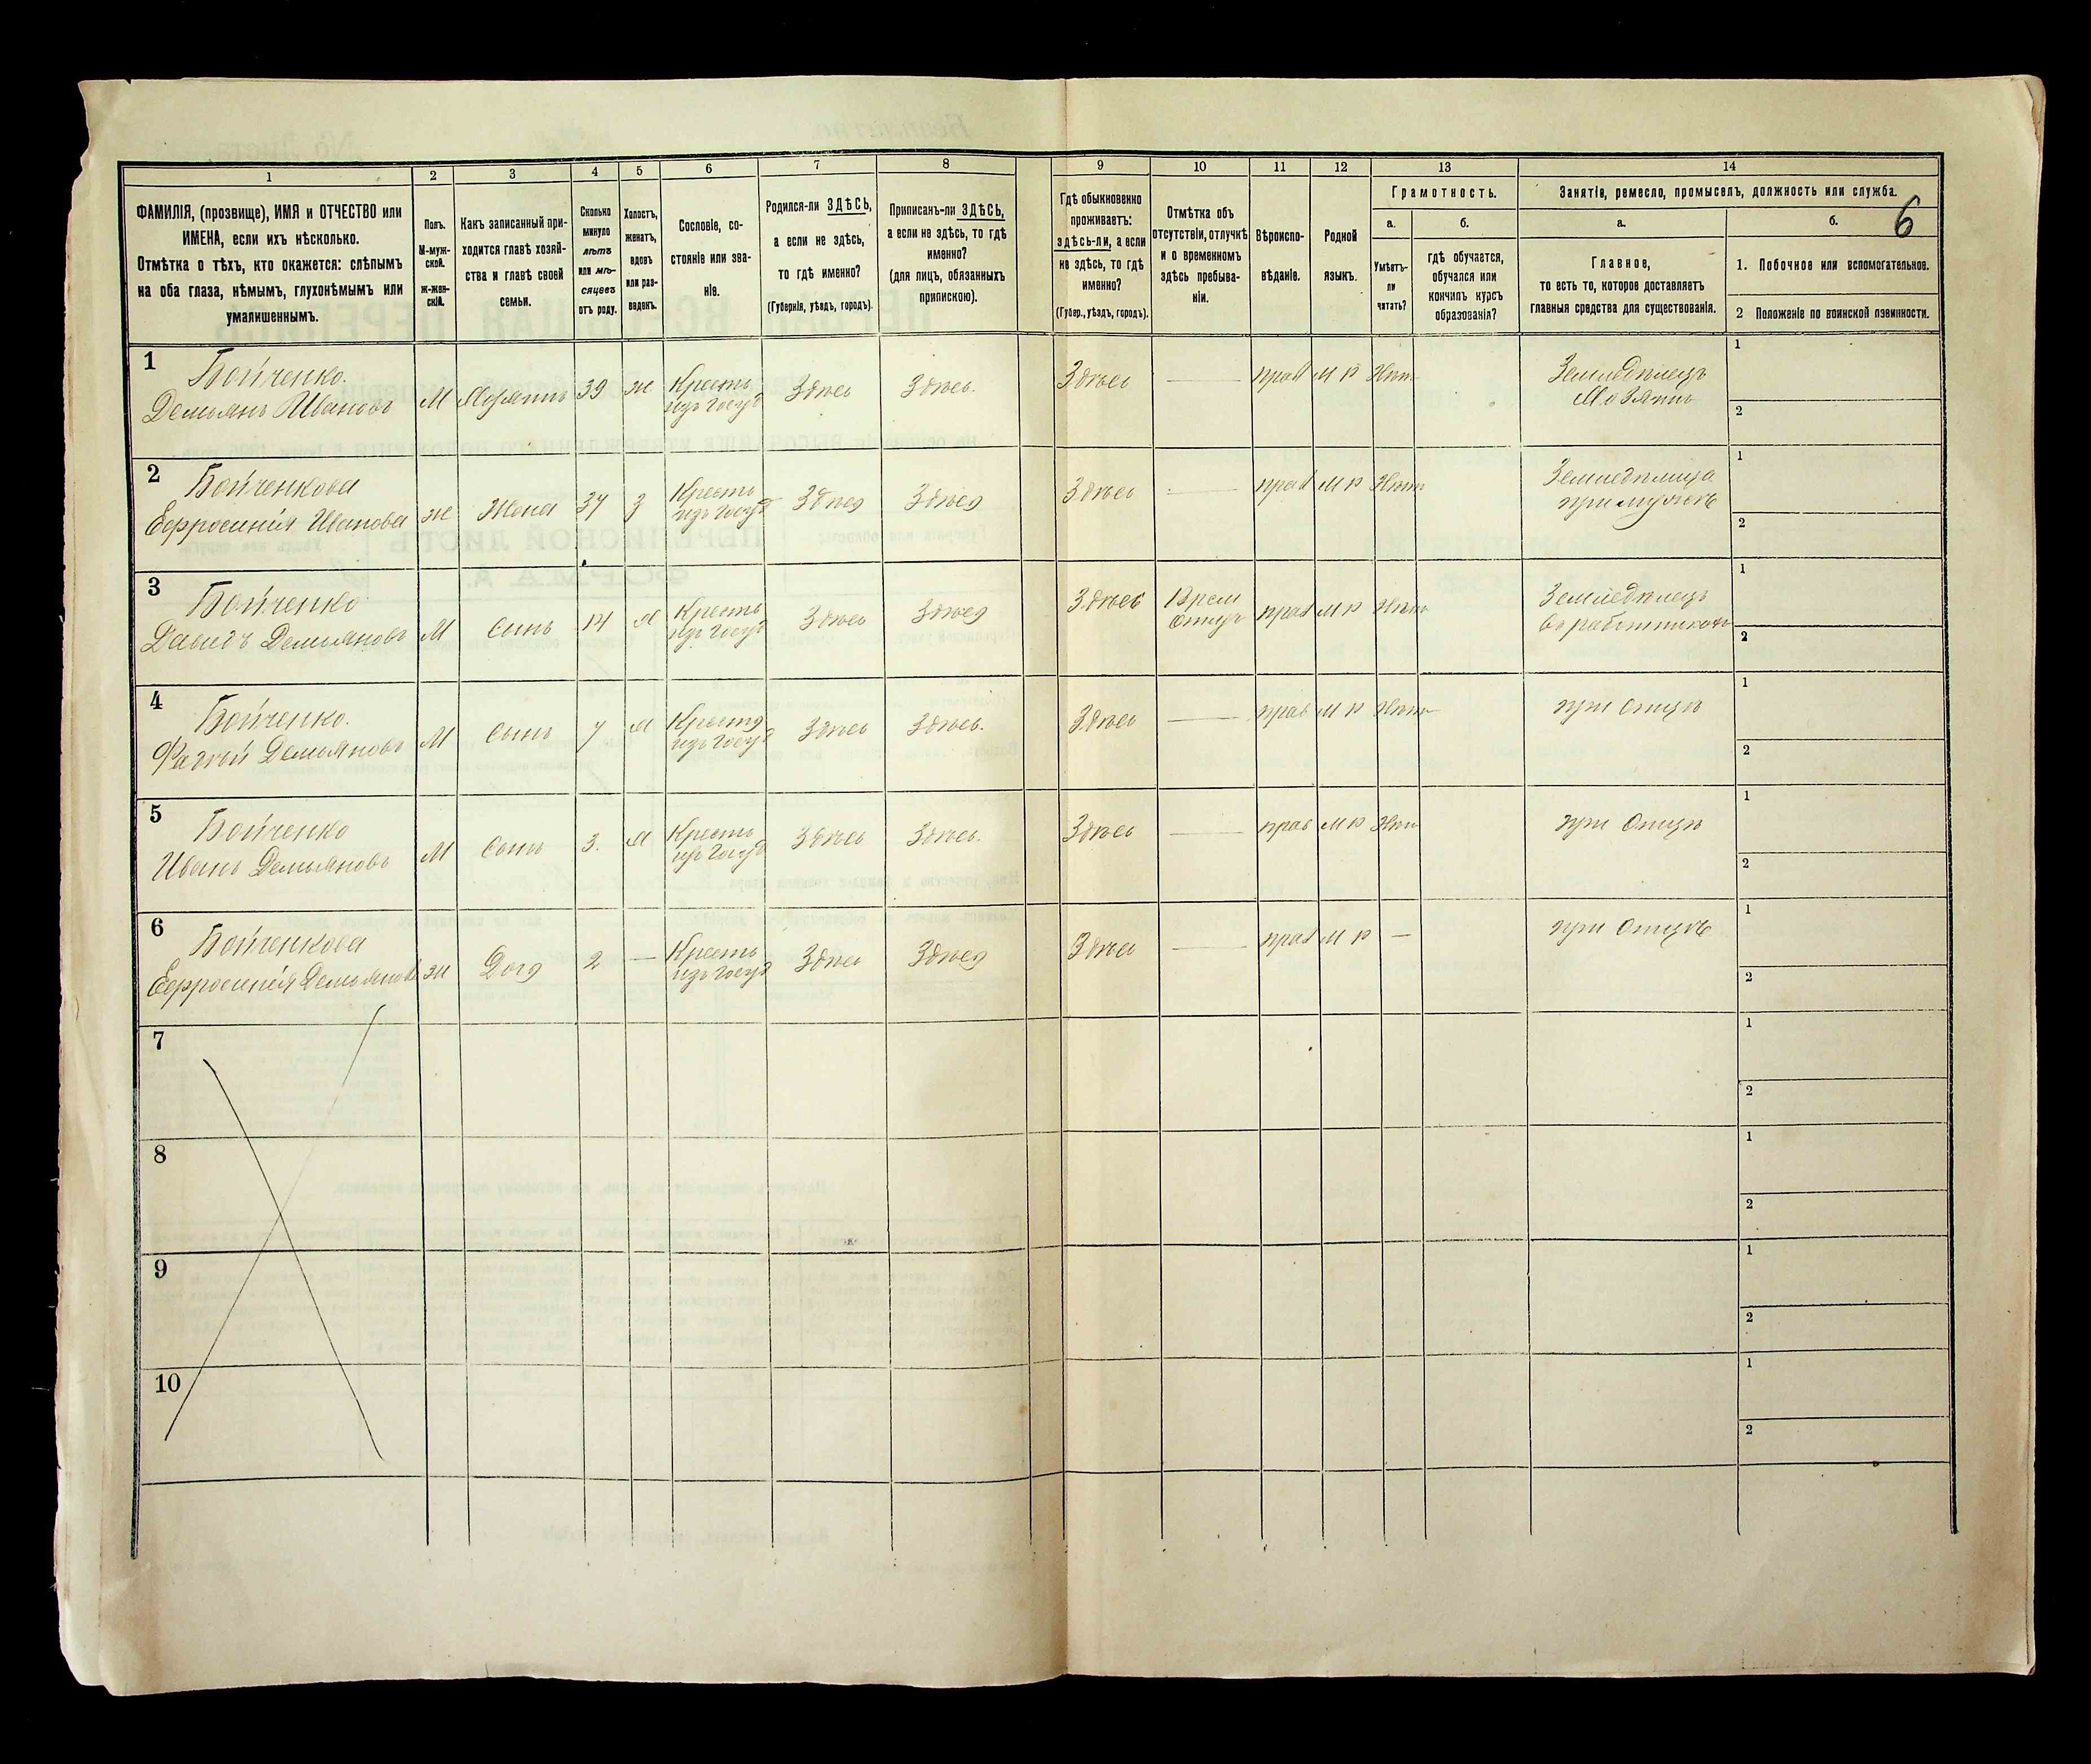 1 2 3 4 5 6 7 8 9 10 11 12 13 14
ФАМИЛІЯ, (прозвище), ИМЯ и ОТЧЕСТВО или
ИМЕНА, если ихъ нѣсколько.
Отмѣтка о тѣхъ, кто окажется: слѣпымъ
на оба глаза, нѣмымъ, глухонѣмымъ или
умалишеннымъ.
Полъ.
М-муж-
ской.
Ж-жен-
скій.
Какъ записанный при-
ходится главѣ хозяй-
ства и главѣ своей
семьи.
Сколько
минуло
лѣтъ
или мѣ-
сяцевъ
отъ роду.
Холостъ,
женатъ,
вдовъ
или раз-
веденъ.
Сословіе, со-
стояніе или зва-
ніе.
Родился-ли ЗДѢСЬ,
а если не здѣсь,
то гдѣ именно?
(Губернія, уѣздъ, городъ).
Приписанъ-ли ЗДѢСЬ,
а если не здѣсь, то гдѣ
именно?
(для лицъ, обязанныхъ
припискою).
Гдѣ обыкновенно
проживаетъ:
здѣсь-ли, а если
не здѣсь, то гдѣ
именно?
(Губер., уѣздъ, городъ).
Отмѣтка объ
отсутствіи, отлучкѣ
и о временномъ
здѣсь пребыва-
ніи.
Вѣроиспо-
вѣданіе.
Родной
языкъ.
Грамотность.
а.
Умѣетъ-
ли
читать?
б.
гдѣ обучается,
обучался или
кончилъ курсъ
образованія?
Занятіе, ремесло, промыселъ, должность или служба.
а.
Главное,
то есть то, которое доставляетъ
главныя средства для существованія.
б.
6
1. Побочное или вспомогательное.
2 Положеніе по воинской повинности.
1
Бойченко.
Демьянъ Ивановъ
М
39
ж
Кресть
изъ Госуд
Здѣсь
Здѣсь.
Здѣсь
—
прав
М Р
Нѣтъ
Земледѣлецъ
1
2
2
Бойченкова
Ефросинія Иванова
ж
Жена
34
З
Кресть
изъ Госуд
Здѣсь
Здѣсь
Здѣсь
—
прав
М Р
Нѣтъ
Земледѣлица
при мужѣ
1
2
3
Бойченко
Давидъ Демьяновъ
М
Сынъ
14
Х
Кресть
изъ Госуд
Здѣсь
Здѣсь
Здѣсь
Врем
Отлуч
прав
М Р
Нѣтъ
Земледѣлецъ
въ работникахъ
1
2
4
Бойченко.
Фатѣй Демьяновъ
М
Сынъ
7
Х
Кресть
изъ Госуд
Здѣсь
Здѣсь.
Здѣсь
—
прав
М Р
Нѣтъ
при Отцѣ
1
2
5
Бойченко
Иванъ Демьяновъ
М
Сынъ
3.
Х
Кресть
изъ Госуд
Здѣсь
Здѣсь.
Здѣсь
—
прав
М Р
Нѣтъ
при Отцѣ
1
2
6
Бойченкова
Ефросинія Демьянова
ж
Дочь
2
—
Кресть
изъ Госуд
Здѣсь
Здѣсь
Здѣсь
—
прав
М Р
—
при Отцѣ
1
2
7
1
2
8
1
2
9
1
2
10
1
2